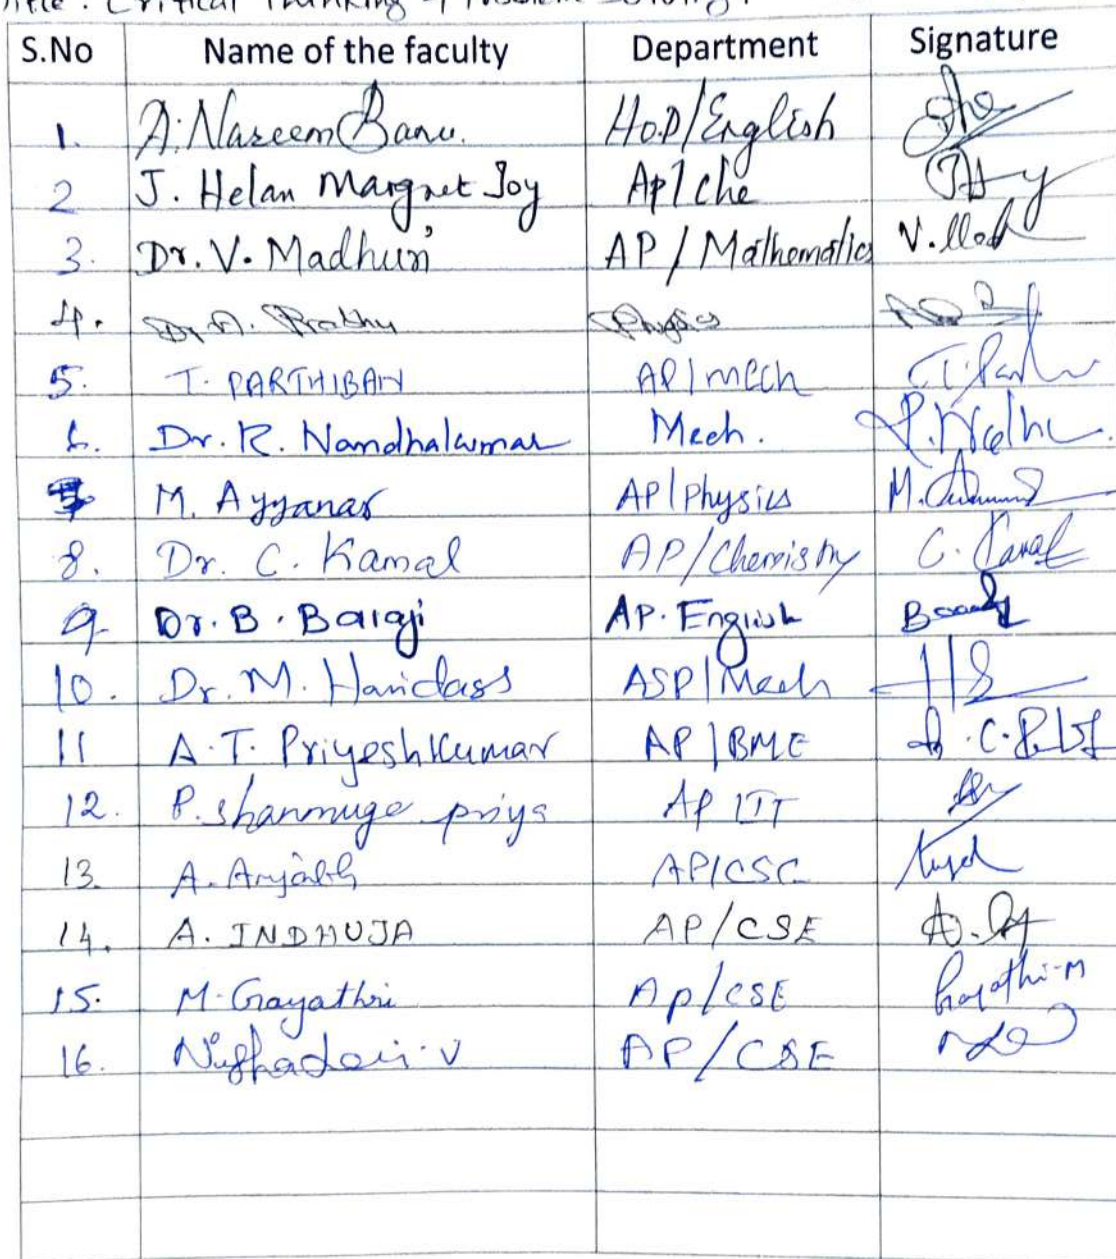 Title : Critical Thinking & Problem Solving.
S.No Name of the faculty Department Signature
1. A. Naseem Banu. HoD/English
2 J. Helan Margret Joy Ap/che
3. Dr. V. Madhuri AP / Mathematics V.
4. Dr. A. Prabhu Physics
5. T. PARTHIBAN AP/mech
6. Dr. R. Nandhakumar Mech.
7 M. Ayyanar AP/Physics M.
8. Dr. C. Kamal AP/Chemistry C. Kamal
9 Dr. B. Balaji AP. English
10. Dr. M. Haridass ASP/Mech
11 A.T. Priyeshkumar AP/BME
12. P. Shanmuga priya AP/IT
13. A. AP/CSC
14. A. INDHUJA AP/CSE
15. M. Gayathri Ap/CSE Gayathri-M
16. V AP/CSE